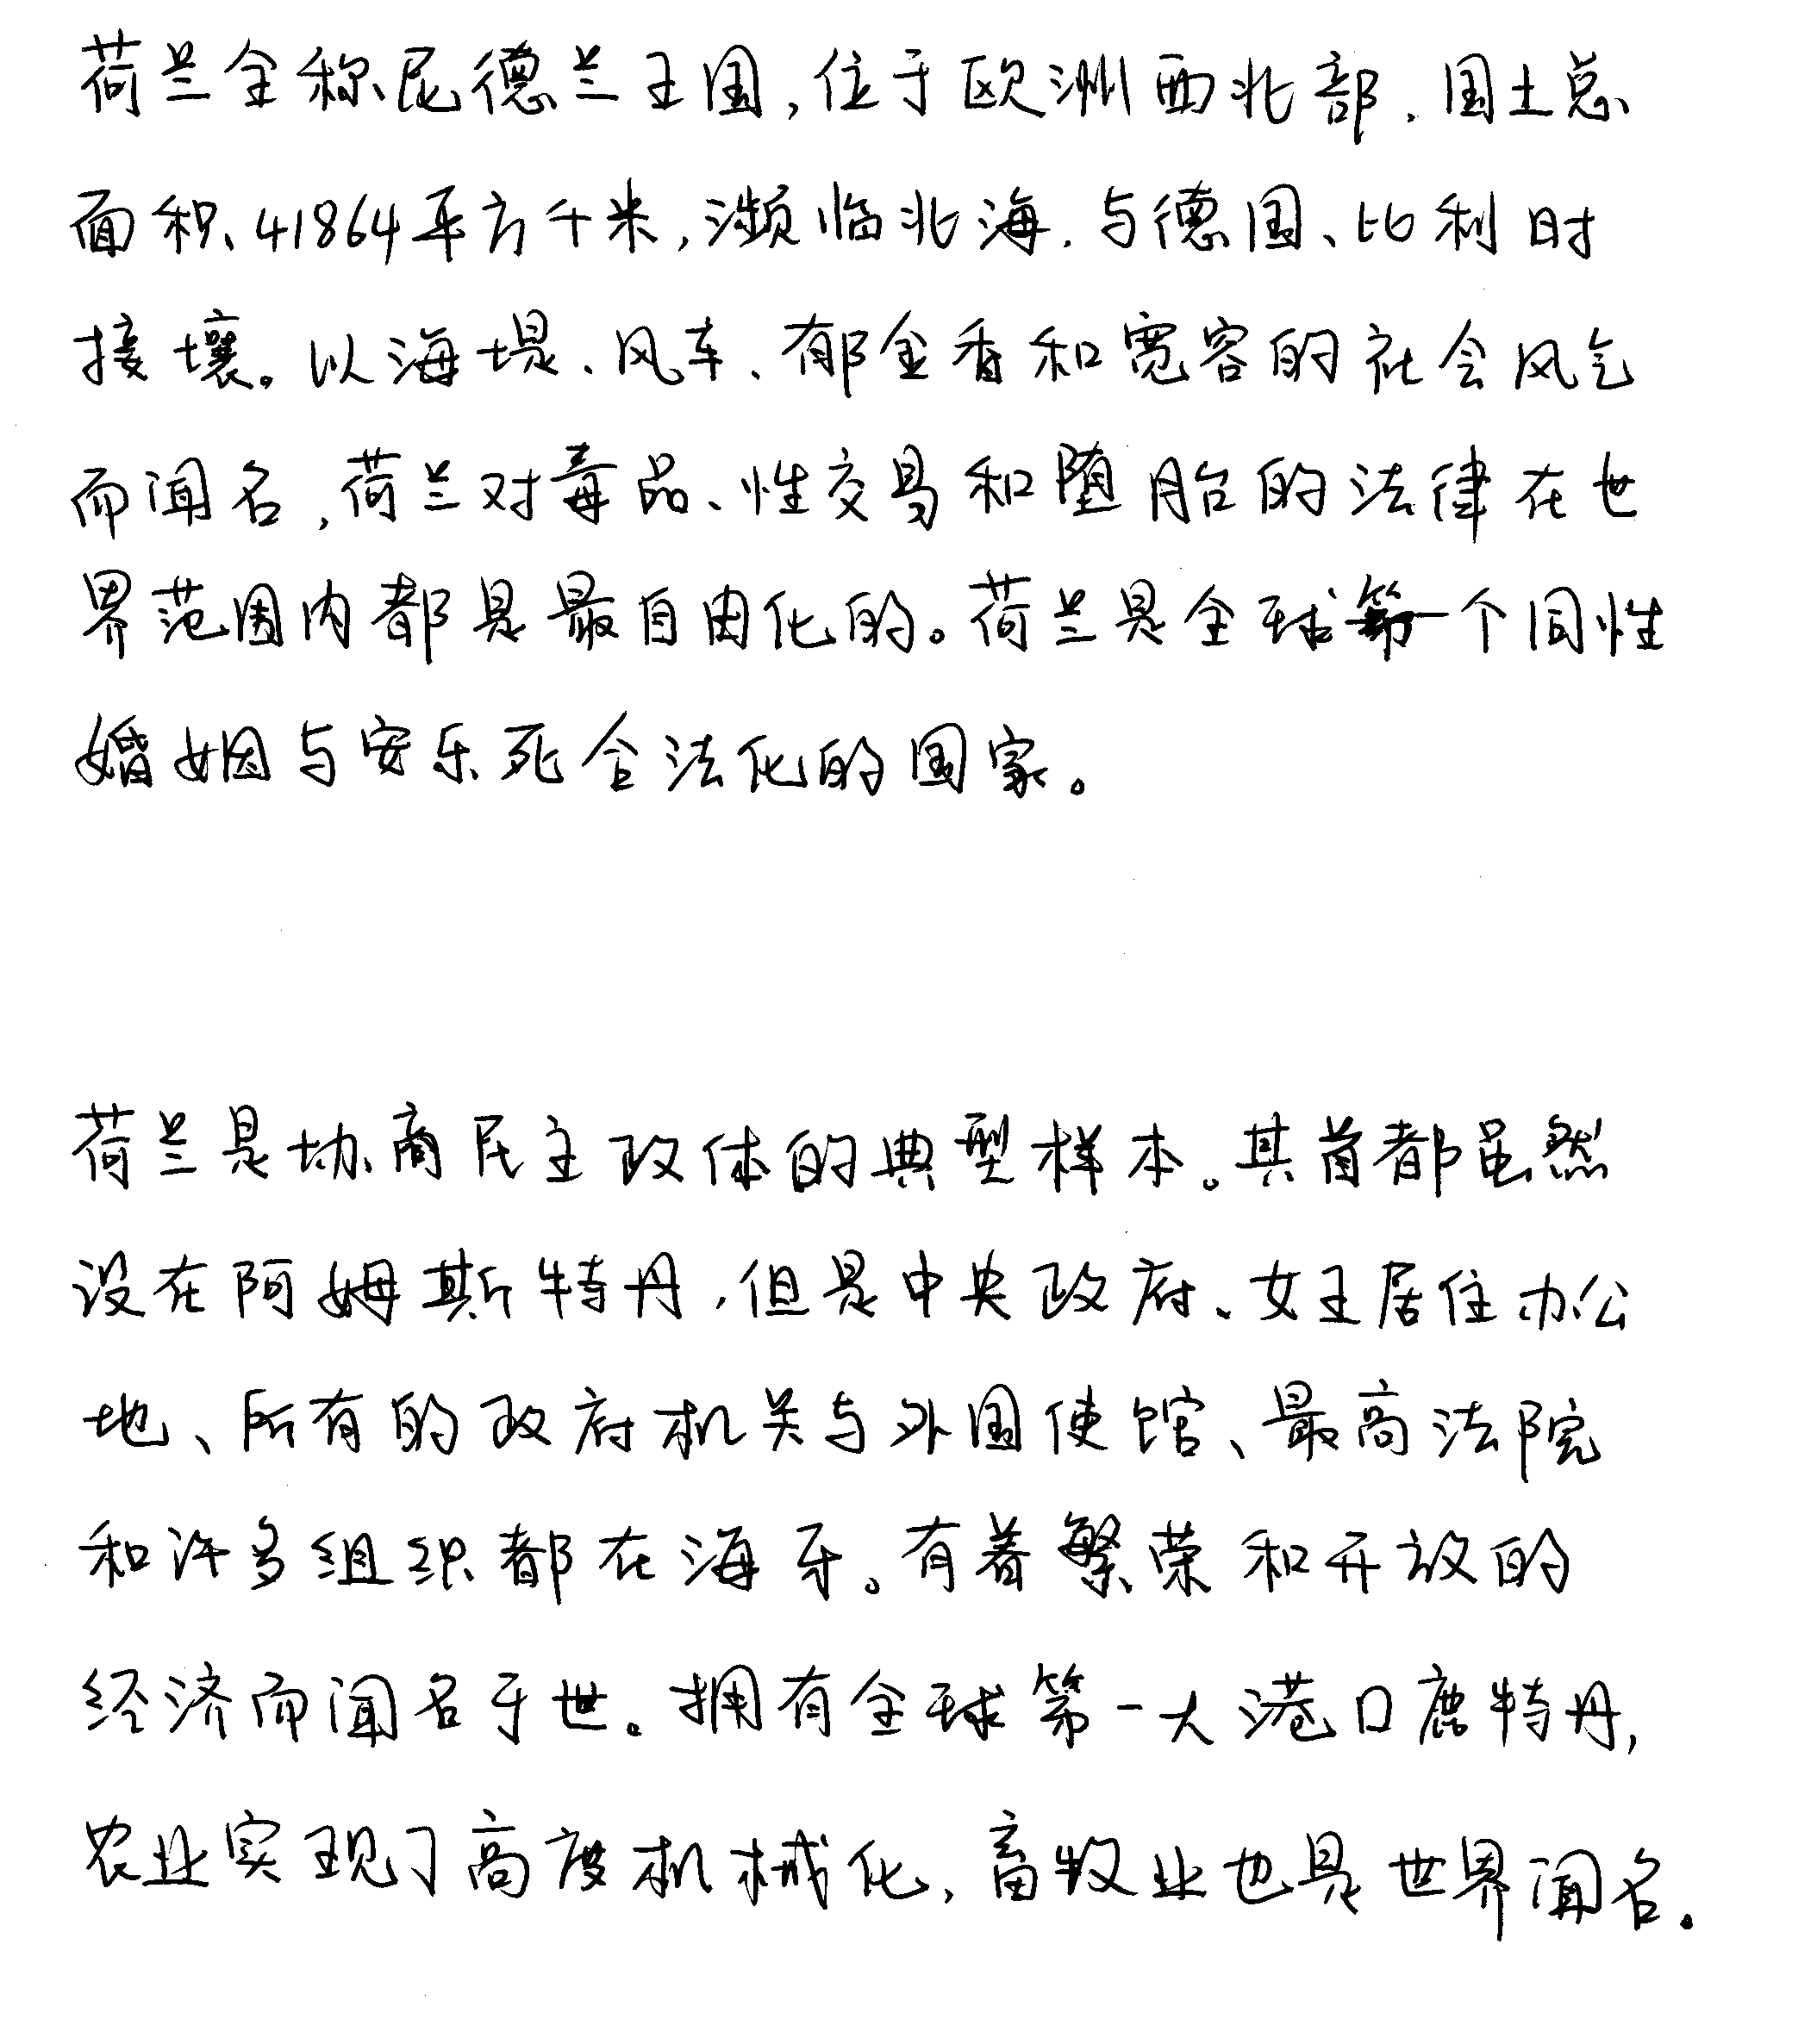 荷兰全称尼德兰王国,位于欧洲西北部,国土总
面积41864平方千米,濒临北海,与德国、比利时
接壤。以海堤、风车、郁金香和宽容的社会风气
而闻名,荷兰对毒品、性交易和堕胎的法律在世
界范围内都是最自由化的。荷兰是全球第一个同性
婚姻与安乐死合法化的国家。
荷兰是协商民主政体的典型样本。其首都虽然
设在阿姆斯特丹,但是中央政府、女王居住办公
地、所有的政府机关与外国使馆、最高法院
和许多组织都在海牙。有着繁荣和开放的
经济而闻名于世。拥有全球第一大港口鹿特丹,
农业实现了高度机械化,畜牧业也是世界闻名。